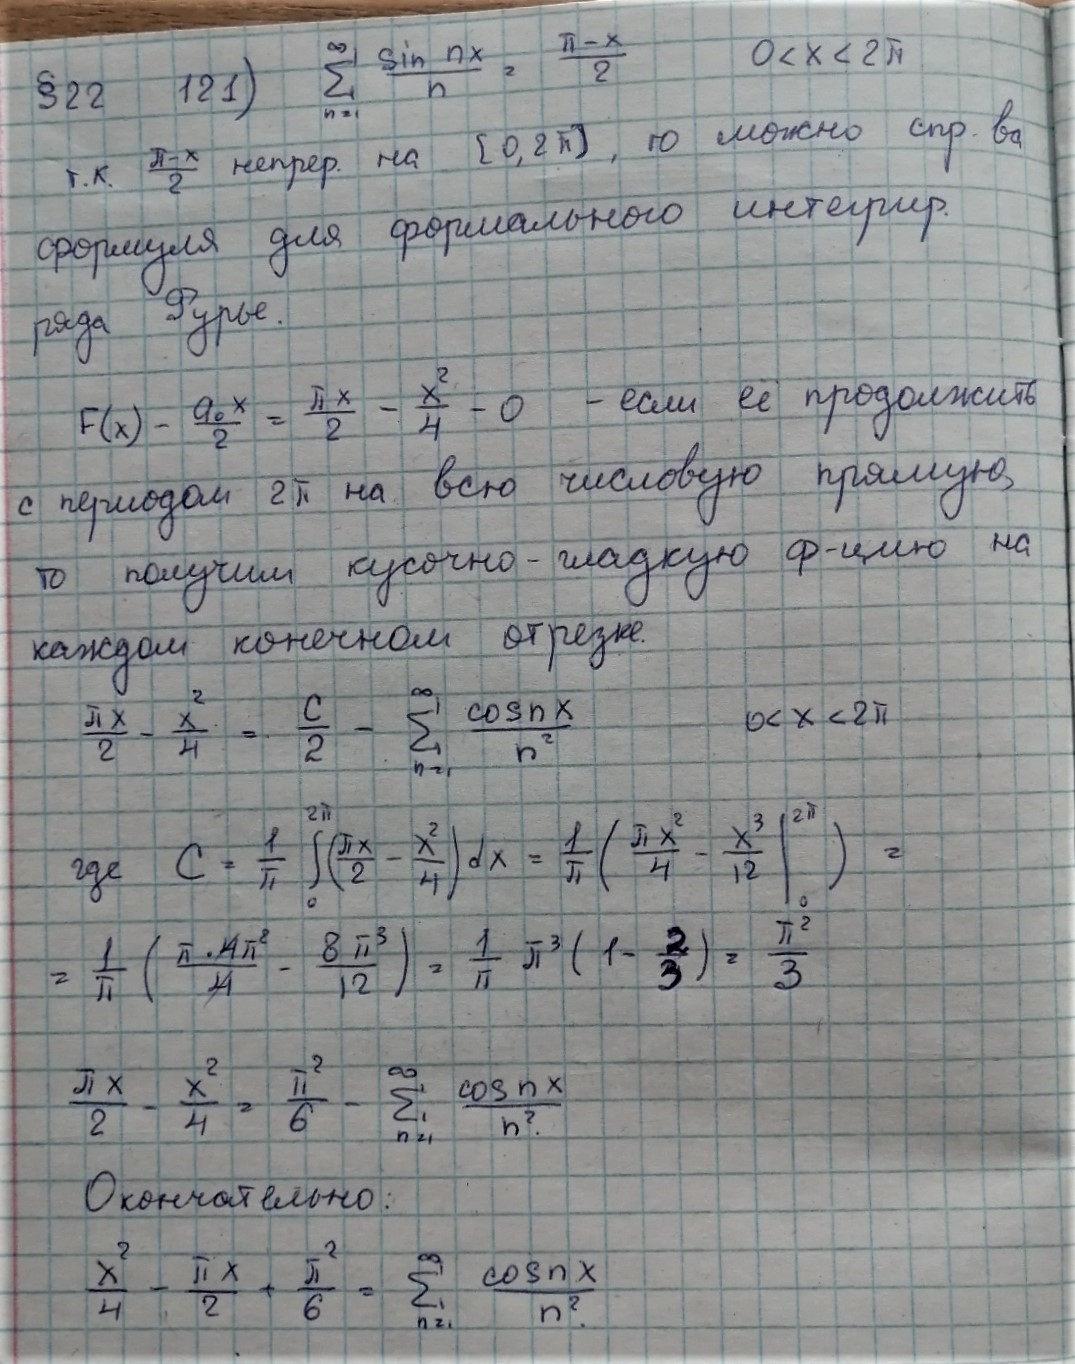 §22 121) ∑_{n=1}^{∞} sin nx / n = (π-x)/2 0<x<2π
т.к. (π-x)/2 непрер. на [0,2π], то можно спр. ва
формуля для формального интегрир.
ряда Фурье.
F(x) - a₀x/2 = πx/2 - x²/4 - 0 - если её продолжить
с периодом 2π на всю числовую прямую,
то получим кусочно-гладкую ф-цию на
каждом конечном отрезке.
πx/2 - x²/4 = C/2 - ∑_{n=1}^{∞} cos nx / n² 0<x<2π
где C = 1/π ∫₀^{2π} (πx/2 - x²/4) dx = 1/π (πx²/4 - x³/12 |₀^{2π}) =
= 1/π (π·4π²/4 - 8π³/12) = 1/π π³ (1 - 2/3) = π²/3
πx/2 - x²/4 = π²/6 - ∑_{n=1}^{∞} cos nx / n².
Окончательно:
x²/4 - πx/2 + π²/6 = ∑_{n=1}^{∞} cos nx / n².